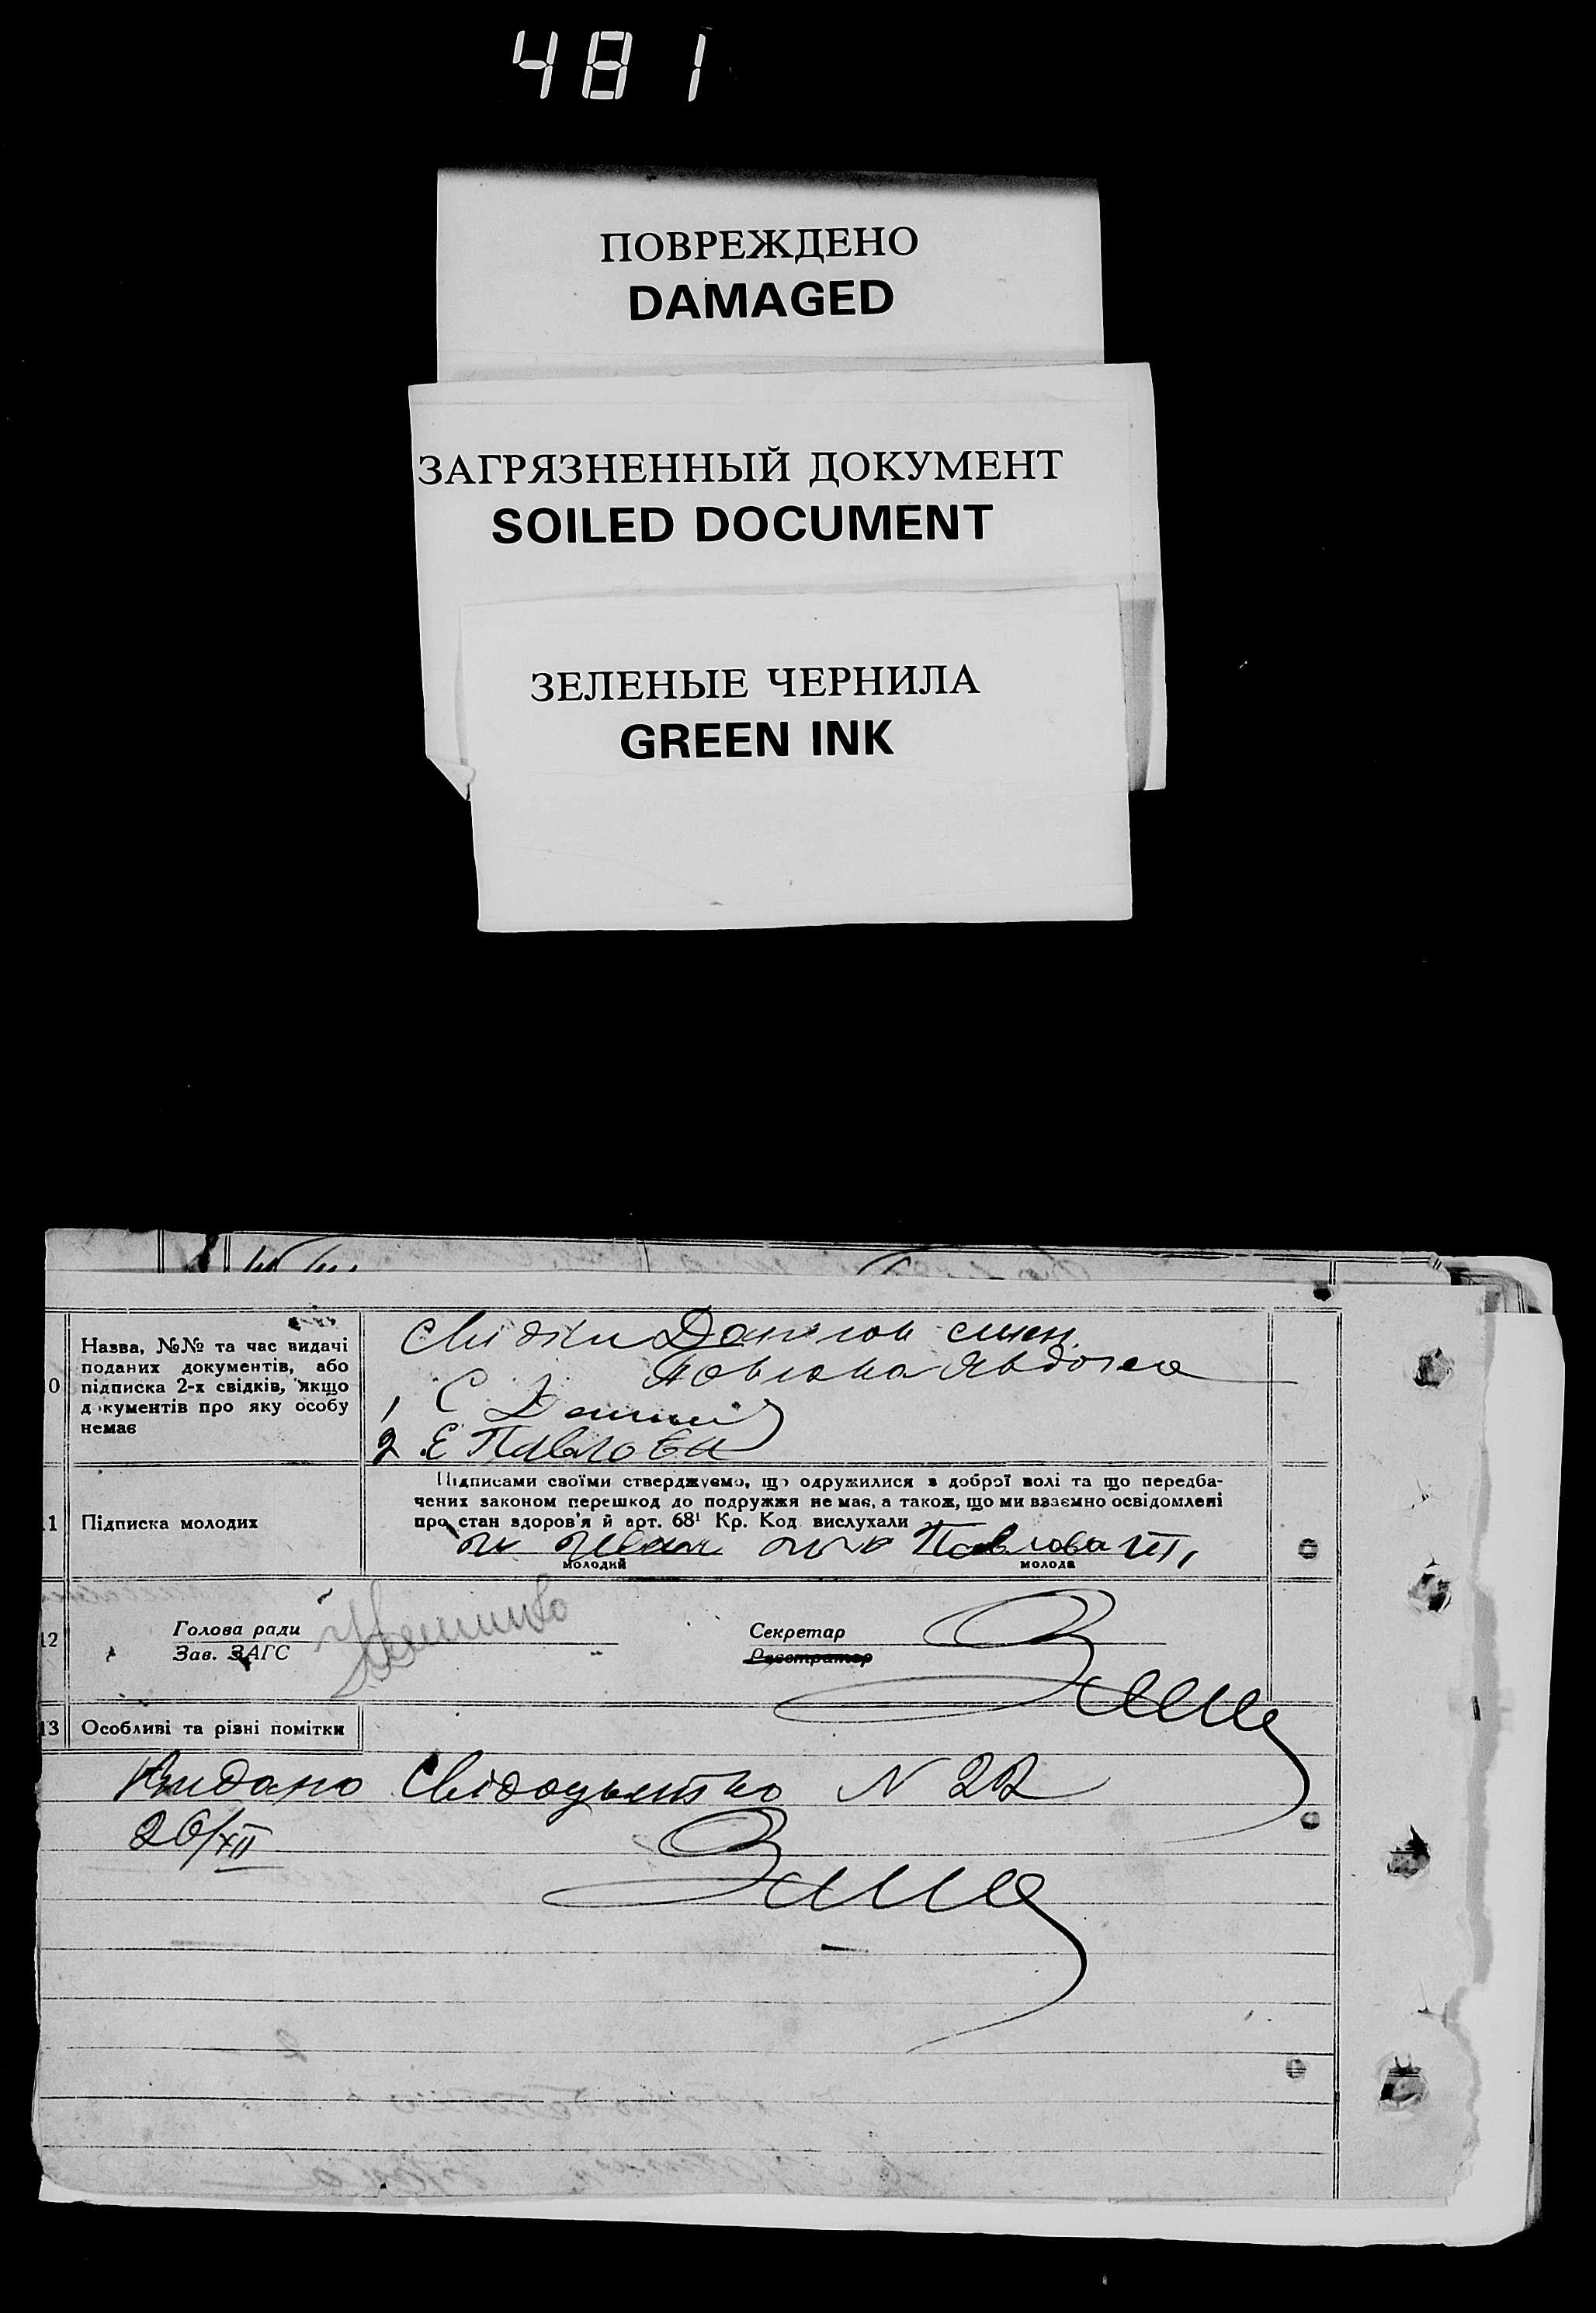 481
ПОВРЕЖДЕНО
DAMAGED
ЗАГРЯЗНЕННЫЙ ДОКУМЕНТ
SOILED DOCUMENT
ЗЕЛЕНЫЕ ЧЕРНИЛА
GREEN INK
0
Назва, №№ та час видачі
поданих документів, або
підписка 2-х свідків, якщо
документів про яку особу
немає
Свідки
Явдоха
1
2 Е Павлова
1 Підписка молодих
Підписами своїми стверджуємо, що одружилися з доброї волі та що передба-
чених законом перешкод до подружжя не має, а також, що ми взаємно освідомлені
про стан здоров'я й арт. 68¹ Кр. Код вислухали
Павлова
молодий молода
12
Голова ради
Зав. ЗАГС
Секретар
Реєстратор
13 Особливі та різні помітки
Видано Свідоцьтво N 22
26/XII